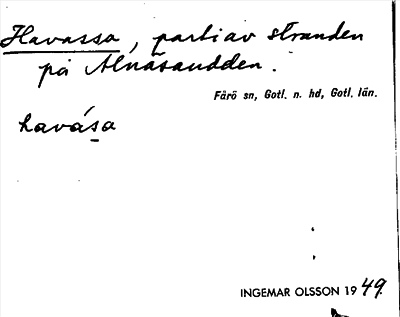 Havassa, parti av stranden
på Alnäsaudden.
Fårö sn, Gotl. n. hd, Gotl. län.
havása
INGEMAR OLSSON 1949.